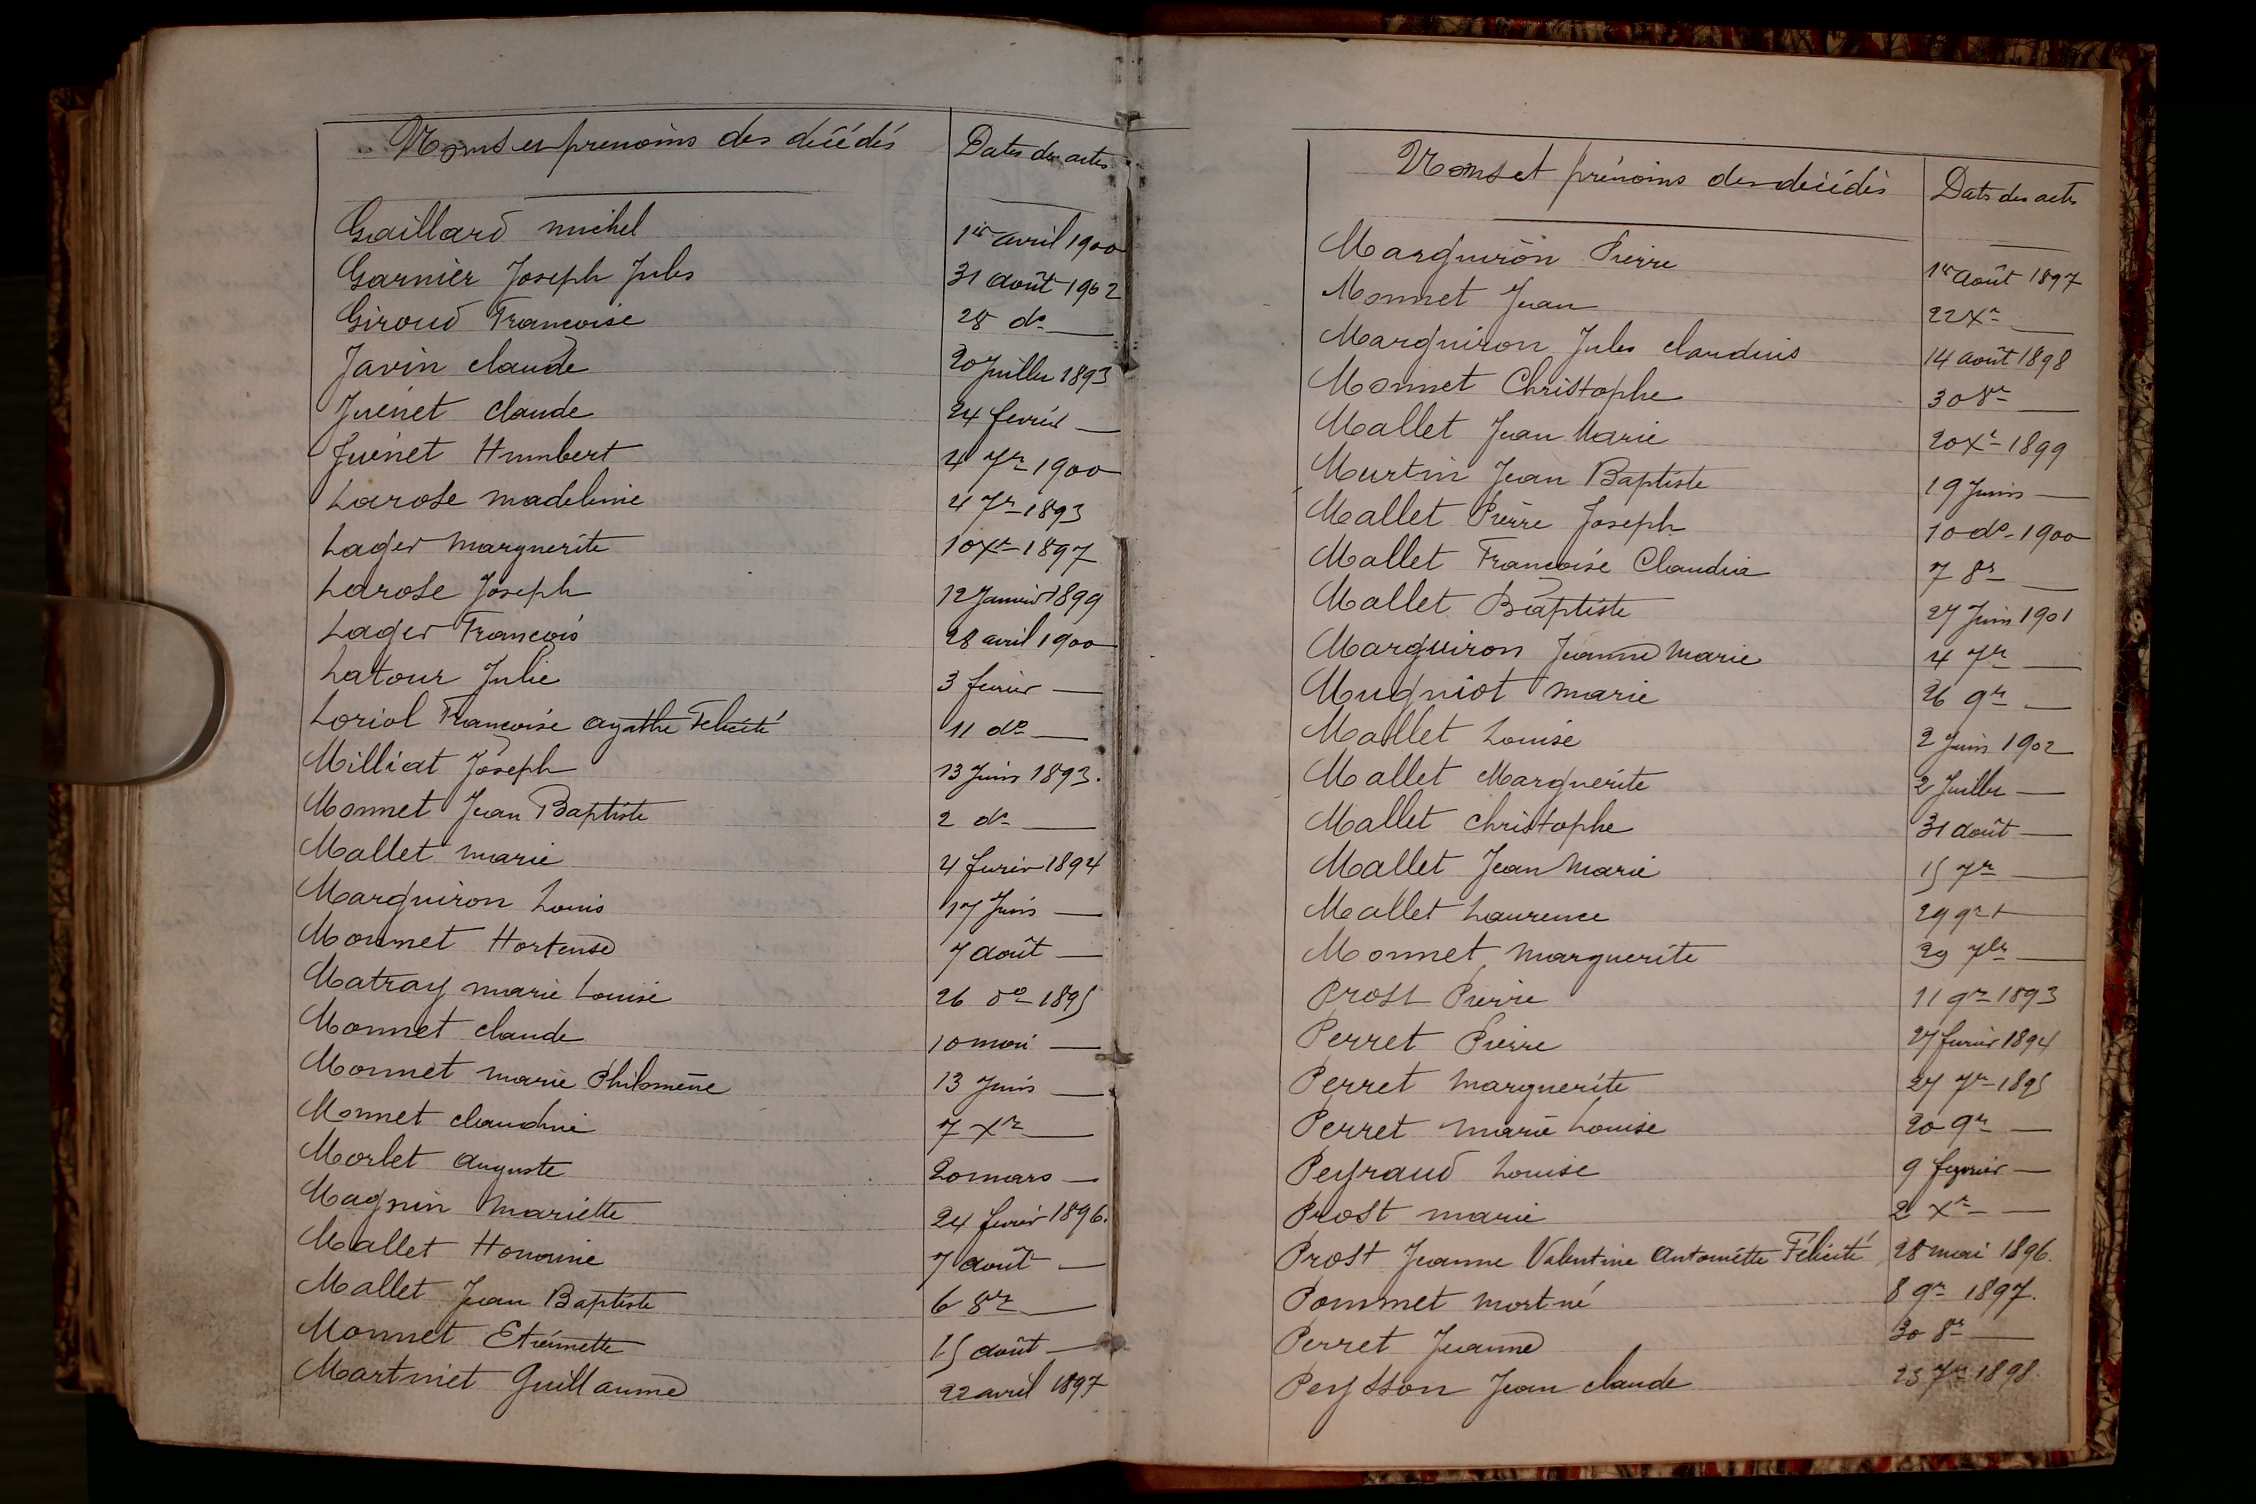 Noms et prenoms des décédés Dates des actes
Gaillard michel 1er avril 1900
Garnier Joseph Jules 31 août 1902
Giroud Françoise 28 do —
Javin claude 20 Juillet 1893
Juénet claude 24 février —
Juénet Humbert 4 7re 1900
Larose madeleine 4 7re 1893
Lager marguerite 10 Xre 1897
Larose Joseph 12 Janvier 1899
Lager François 28 avril 1900
Latour Julie 3 février —
Loriol Françoise agathe Felicité 11 do —
Milliat Joseph 13 Juin 1893.
Monnet Jean Baptiste 2 do —
Mallet marie 4 février 1894
Marguiron Louis 17 Juin —
Monnet Hortense 7 août —
Matray marie Louise 26 do 1895
Monnet claude 10 mai —
Monnet marie Philomène 13 Juin —
Monnet claudine 7 Xre —
Morlet auguste 20 mars —
Magnin Mariette 24 février 1896.
Mallet Honorine 7 août —
Mallet Jean Baptiste 6 8re —
Monnet Etiennette 15 août —
Martinet Guillaume 22 avril 1897
Noms et prénoms des décédés Dates des actes
Marguiron Pierre 1er août 1897
Monnet Jean 22 Xre —
Marguiron Jules claudius 14 août 1898
Monnet Christophe 30 8re —
Mallet Jean Marie 20 Xre 1899
Murtin Jean Baptiste 19 Juin —
Mallet Pierre Joseph 10 do 1900
Mallet Françoise Claudia 7 8re —
Mallet Baptiste 27 Juin 1901
Marguiron Jeanne Marie 4 7re —
Mugniot marie 26 9re —
Mallet Louise 2 Juin 1902
Mallet Marguerite 2 Juillet —
Mallet christophe 31 août —
Mallet Jean Marie 15 7re —
Mallet Laurence 29 9re —
Monnet marguerite 29 7bre —
Prost Pierre 11 9re 1893
Perret Pierre 27 février 1894
Perret marguerite 27 7re 1895
Perret marie Louise 20 9re —
Peyraud Louise 9 février —
Prost marie 2 Xre —
Prost Jeanne Valentine Antoinette Félicité 28 mai 1896.
Pommet mort né 8 9re 1897.
Perret Jeanne 30 8re —
Peysson Jean claude 25 7re 1898.